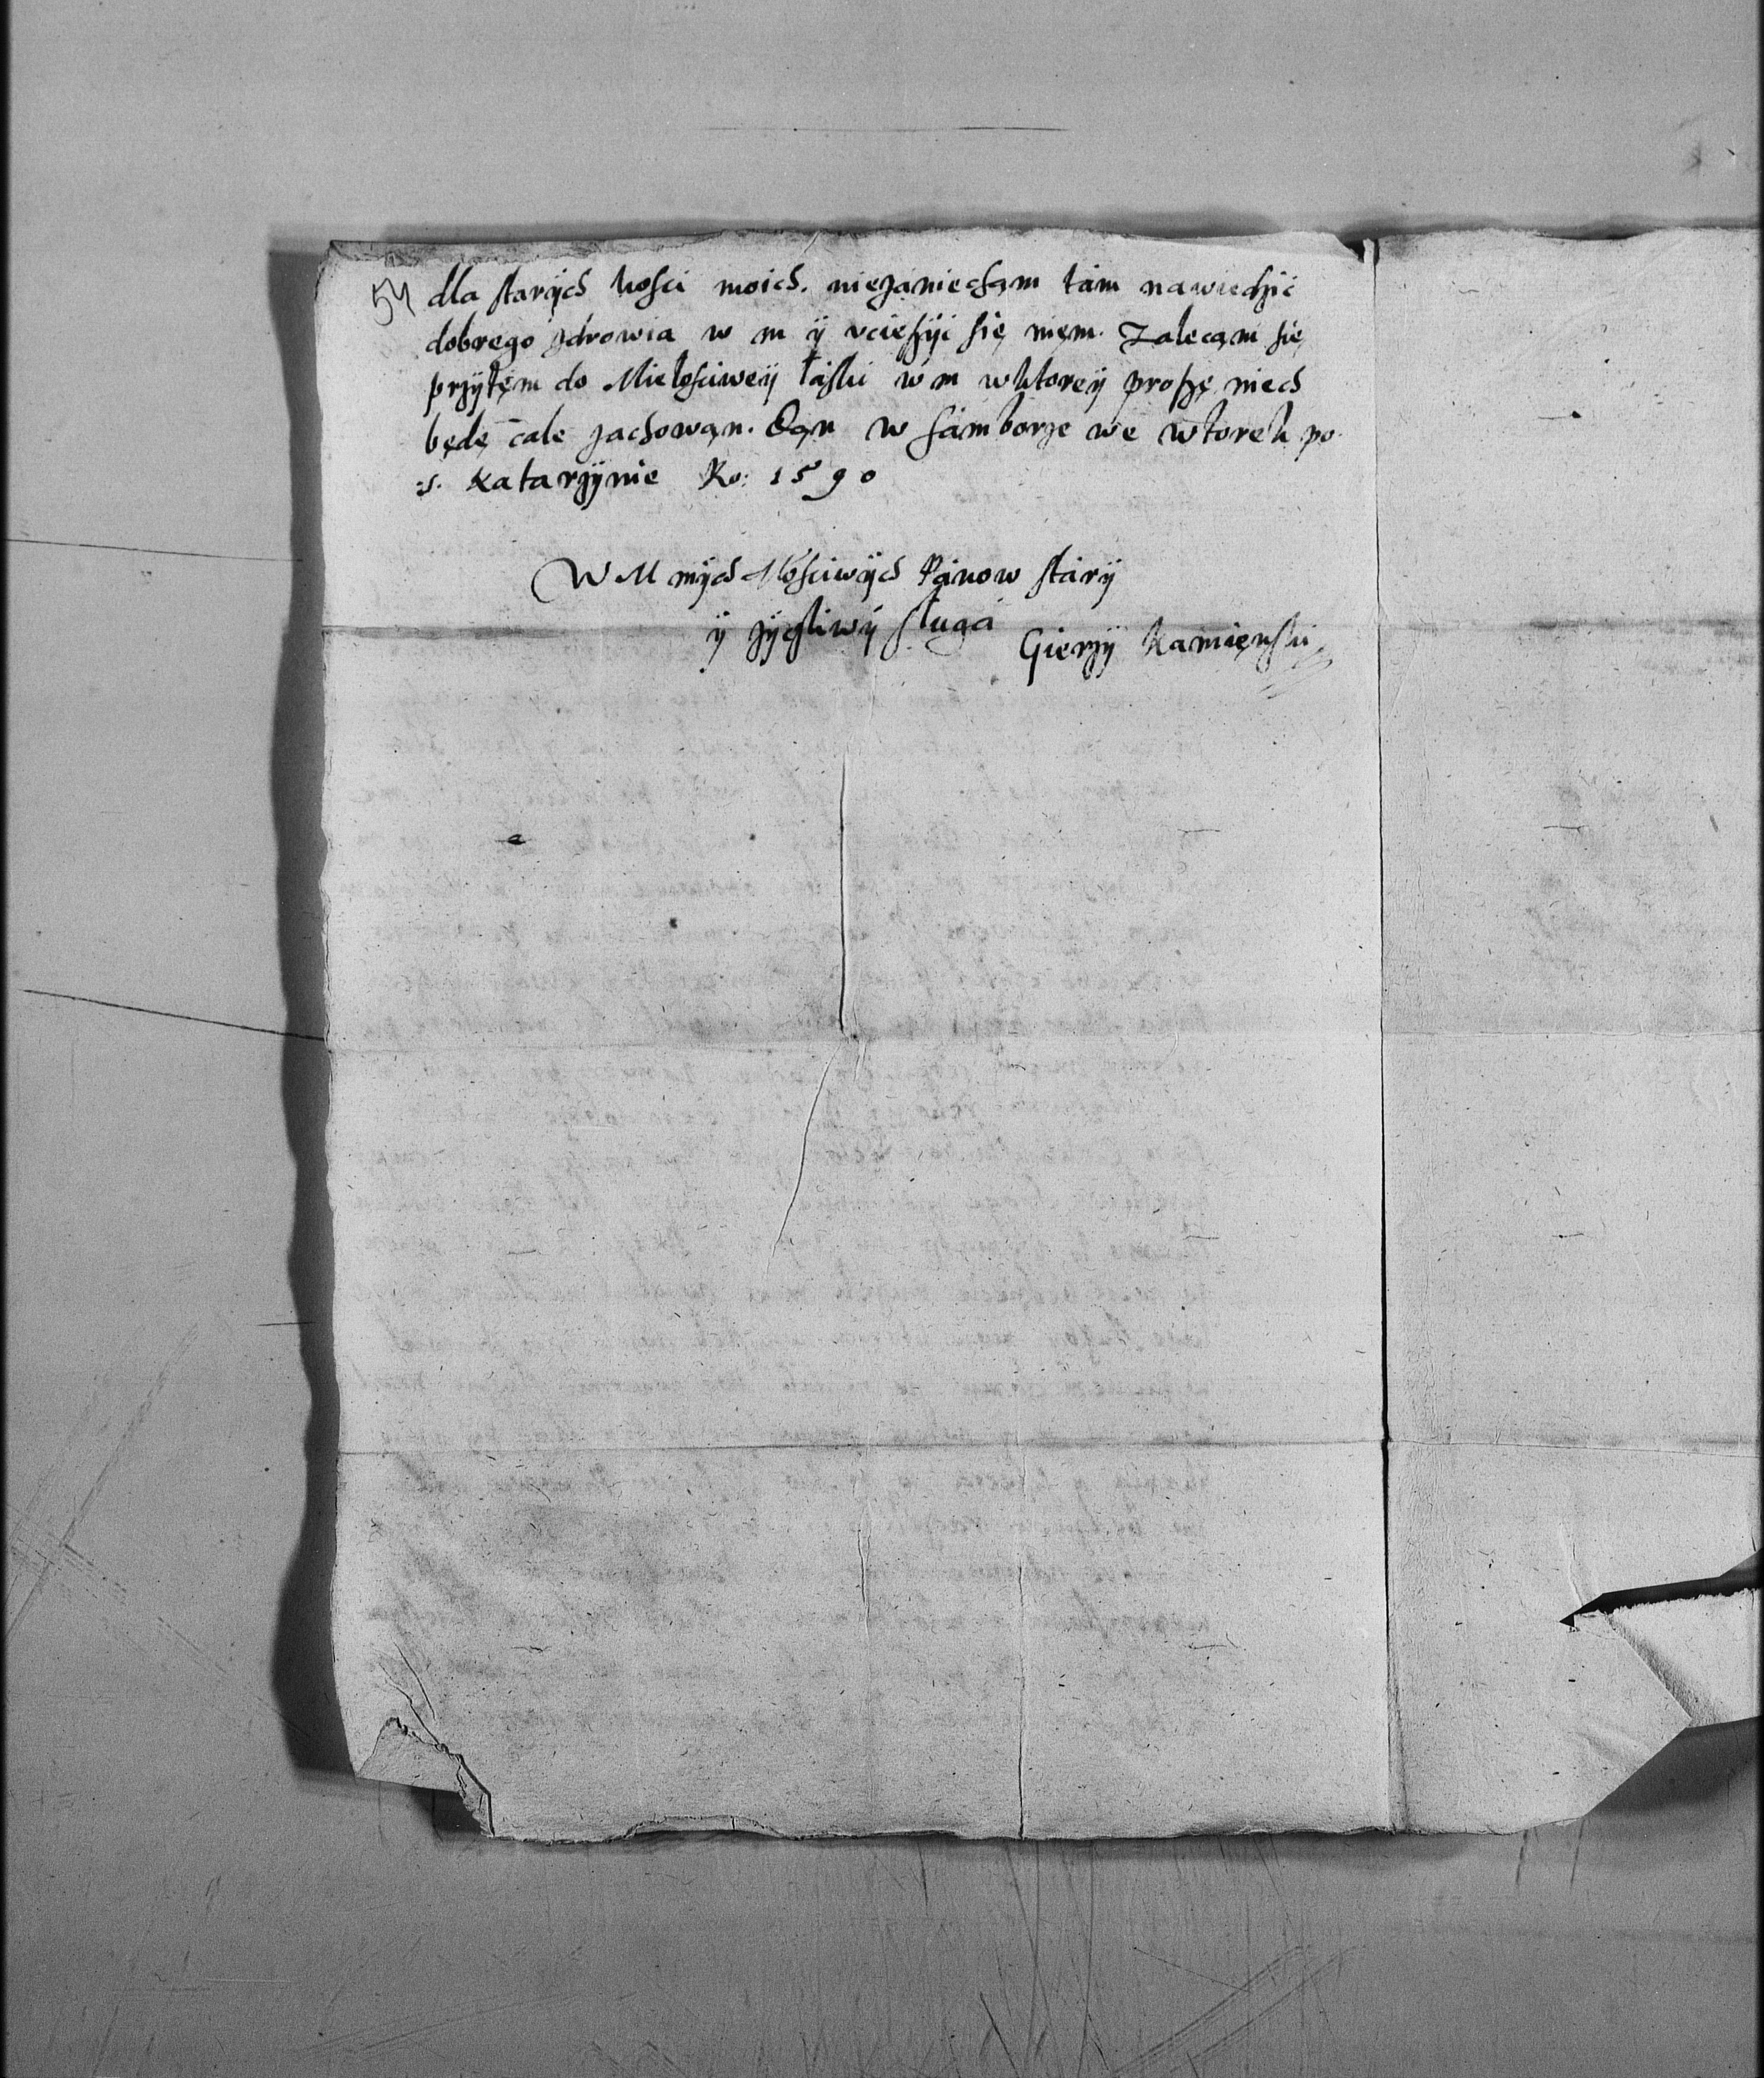 54 dla starÿch kości moich. niezaniecham tam nawiedzić
dobrego zdrowia w m ÿ vcieszÿć się niem. Zalecam się
przÿtem do Miełościweÿ łaski w m wktoreÿ proszę niech
będę cale zachowan. Dan w Samborze we wtorek po
:s. Katarzÿnie Ro: 1590
W M mÿch Mościwÿch Panow starÿ
ÿ zÿczliwÿ sługa
Gierzÿ Kamięnski